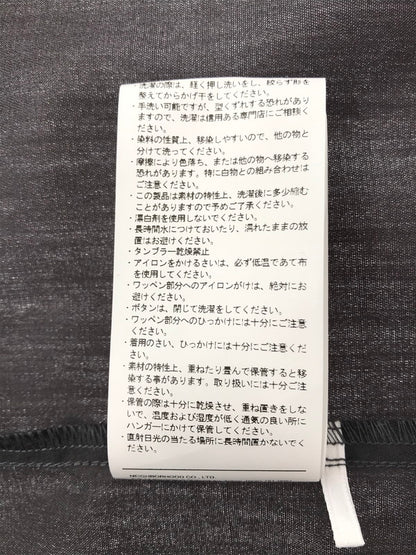 洗濯の際は、軽く押し洗いをし、絞らず形を
整えてからかげ干をしてください。
・手洗い可能ですが、型くずれする恐れがあり
ますので、洗濯は信用ある専門店にご相談く
ださい。
・染料の性質上、移染しやすいので、他の物と
分けて洗ってください。
・摩擦により色落ち、または他の物へ移染する
恐れがあります。特に白物との組み合わせは
ご注意ください。
・この製品は素材の特性上、洗濯後に多少縮む
ことがありますので予めご了承ください。
・漂白剤を使用しないでください。
・長時間水につけておいたり、濡れたままの放
置はお避けください。
・タンブラー乾燥禁止
・アイロンをかけるさいは、必ず低温であて布
を使用してください。
・ワッペン部分へのアイロンがけは、絶対にお
避けください。
・ボタンは、閉じて洗濯をしてください。
・ワッペン部分へのひっかけには十分にご注意
ください。
・着用のさい、ひっかけには十分にご注意くだ
さい。
・素材の特性上、重ねたり畳んで保管すると移
染する事があります。取り扱いには十分ご注
意ください。
・保管の際は十分に乾燥させ、重ね置きをしな
いで、温度および湿度が低く通気の良い所に
ハンガーにかけて保管してください。
・直射日光の当たる場所に長時間置かないでく
ださい。
NEIGHBORHOOD CO., LTD.